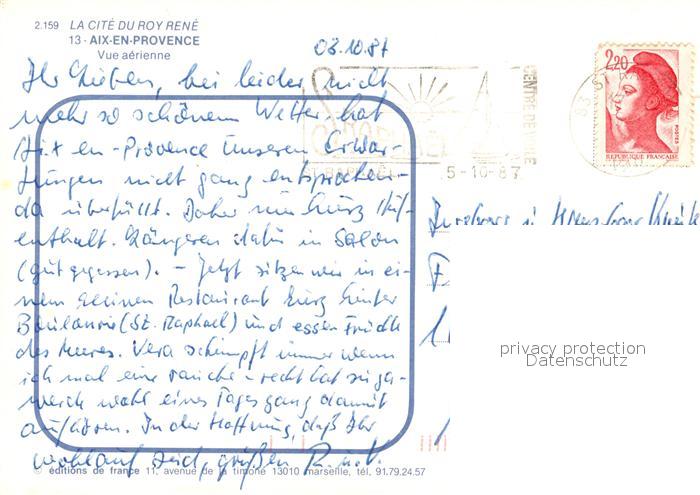 2.159 LA CITÉ DU ROY RENÉ
13 - AIX-EN-PROVENCE
Vue aérienne
03.10.87
Ihr Lieben, bei leider nicht
mehr so schönem Wetter hat
Aix en-Provence unseren Erwar-
tungen nicht ganz entsprochen -
da überfüllt. Daher nur kurz Auf-
enthalt. Längeren dafür in Salon
(gut gegessen). - Jetzt sitzen wir in ei-
nem kleinen Restaurant kurz hinter
Boulouris (St. Raphael) und essen Früchte
des Meeres. Vera schimpft immer wenn
ich mal eine rauche - recht hat sie ja -
werde wohl eines Tages ganz damit
aufhören. In der Hoffnung, daß Ihr
wohlauf seid, grüßen
© éditions de france 11, avenue de la timone 13010 marseille, tél. 91.79.24.57
CENTRE DE
5-10-87
2,20
POSTES
REPUBLIQUE FRANÇAISE
privacy protection
Datenschutz